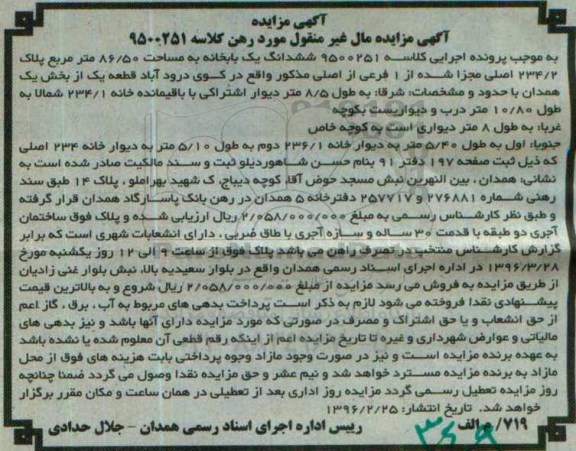 آگهی مزایده
آگهی مزایده مال غیر منقول مورد رهن کلاسه ۹۵۰۰۲۵۱
به موجب پرونده اجرایی کلاسه ۹۵۰۰۲۵۱ ششدانگ یک بابخانه به مساحت ۸۶/۵۰ متر مربع پلاک
۲۳۴/۲ اصلی مجزا شده از ۱ فرعی از اصلی مذکور واقع در کوی درود آباد قطعه یک از بخش یک
همدان با حدود و مشخصات: شرقا: به طول ۸/۵ متر دیوار اشتراکی با باقیمانده خانه ۲۳۴/۱ شمالا به
طول ۱۰/۸۰ متر درب و دیواریست بکوچه
غربا: به طول ۸ متر دیواری است به کوچه خاص
جنوبا: اول به طول ۵/۴۰ متر به دیوار خانه ۲۳۶/۱ دوم به طول ۵/۱۰ متر به دیوار خانه ۲۳۴ اصلی
که ذیل ثبت صفحه ۱۹۷ دفتر ۹۱ بنام حسن شاهوردیلو ثبت و سند مالکیت صادر شده است به
نشانی: همدان، بین النهرین نبش مسجد حوض آقا، کوچه دیباج، ک شهید بهراملو، پلاک ۱۴ طبق سند
رهنی شماره ۲۷۶۸۸۱ و ۲۵۷۷۱۷ دفترخانه ۵ همدان در رهن بانک پاسارگاد همدان قرار گرفته
و طبق نظر کارشناس رسمی به مبلغ ۲/۰۵۸/۰۰۰/۰۰۰ ریال ارزیابی شده و پلاک فوق ساختمان
آجری دو طبقه با قدمت ۳۰ ساله و سازه آجری با طاق ضربی، دارای انشعابات شهری است که برابر
گزارش کارشناس منتخب در تصرف راهن می باشد پلاک فوق از ساعت ۹ الی ۱۲ روز یکشنبه مورخ
۱۳۹۶/۳/۲۸ در اداره اجرای اسناد رسمی همدان واقع در بلوار سعیدیه بالا، نبش بلوار غنی زادیان
از طریق مزایده به فروش می رسد مزایده از مبلغ ۲/۰۵۸/۰۰۰/۰۰۰ ریال شروع و به بالاترین قیمت
پیشنهادی نقدا فروخته می شود لازم به ذکر است پرداخت بدهی های مربوط به آب، برق، گاز اعم
از حق انشعاب و یا حق اشتراک و مصرف در صورتی که مورد مزایده دارای آنها باشد و نیز بدهی های
مالیاتی و عوارض شهرداری و غیره تا تاریخ مزایده اعم از اینکه رقم قطعی آن معلوم شده یا نشده باشد
به عهده برنده مزایده است و نیز در صورت وجود مازاد وجوه پرداختی بابت هزینه های فوق از محل
مازاد به برنده مزایده مسترد خواهد شد و نیم عشر و حق مزایده نقدا وصول می گردد ضمنا چنانچه
روز مزایده تعطیل رسمی گردد مزایده روز اداری بعد از تعطیلی در همان ساعت و مکان مقرر برگزار
خواهد شد. تاریخ انتشار: ۱۳۹۶/۲/۲۵
۷۱۹/ م الف
رییس اداره اجرای اسناد رسمی همدان - جلال حدادی